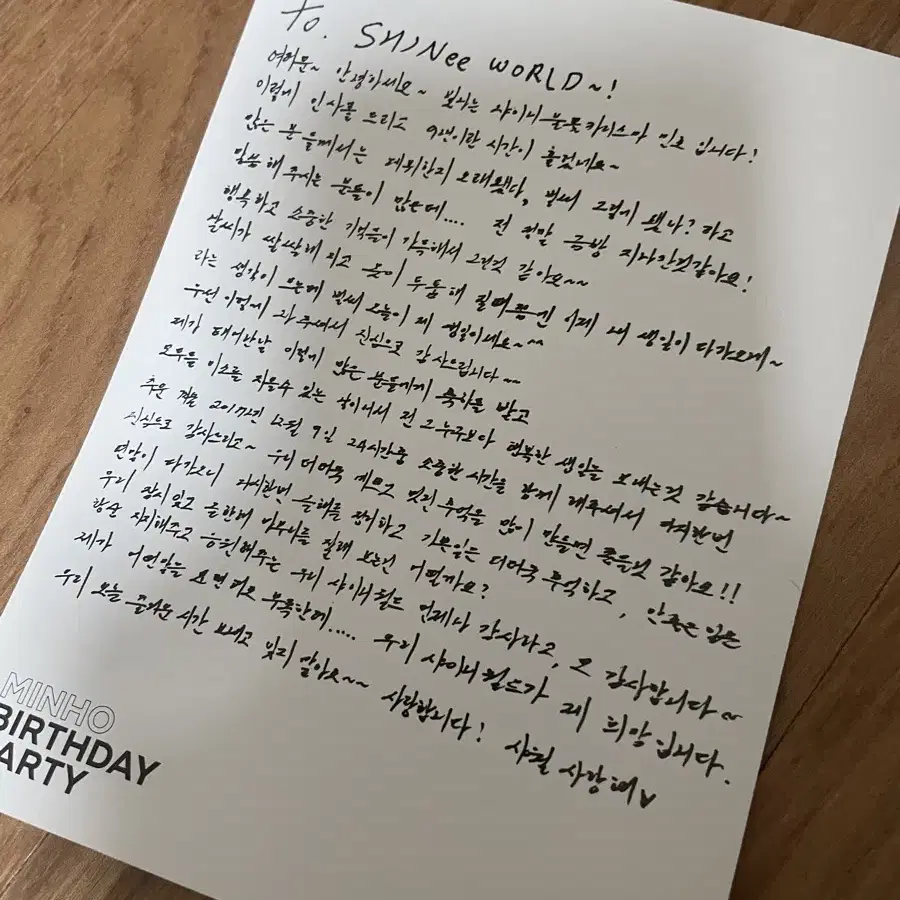 To. SHINee WORLD~!
여러분~ 안녕하세요~ 빛나는 샤이니 불꽃카리스마 민호 입니다!
이렇게 인사를 드리고 9년이란 시간이 흘렀네요~
많은 분들께서는 데뷔한지 오래됐다, 벌써 그렇게 됐나? 라고
말씀해 주시는 분들이 많은데.... 전 정말 금방 지나간것같아요!
행복하고 소중한 기억들이 가득해서 그런것 같아요~~
날씨가 쌀쌀해 지고 옷이 두툼해 질때쯤엔 이제 내 생일이 다가오네~
라는 생각이 드는데 벌써 오늘이 제 생일이네요~^^
우선 이렇게 와주셔서 진심으로 감사드립니다~~
제가 태어난날 이렇게 많은 분들에게 축하를 받고
모두들 미소를 지을수 있는 날이어서 전 그누구보다 행복한 생일을 보내는것 같습니다~
추운 겨울 2017년 12월 9일 24시간중 소중한 시간을 함께 해주셔서 다시한번
진심으로 감사드리고~ 우리 더더욱 재밌고 멋진 추억을 많이 만들면 좋을것 같아요!!
연말이 다가오니 다시한번 올해를 정리하고 기쁜일은 더더욱 추억하고, 안좋은 일은
우리 잠시잊고 올한해 마무리를 잘해 보는건 어떨까요?
항상 지지해주고 응원해주는 우리 샤이니월드 언제나 감사하고, 또 감사합니다~
제가 어떤말을 표현해도 부족한데..... 우리 샤이니월드가 제 희망입니다.
우리 오늘 즐거운 시간 보내고 잊지 말아요~~ 사랑합니다! 샤월 사랑해♥
MINHO
BIRTHDAY
ARTY